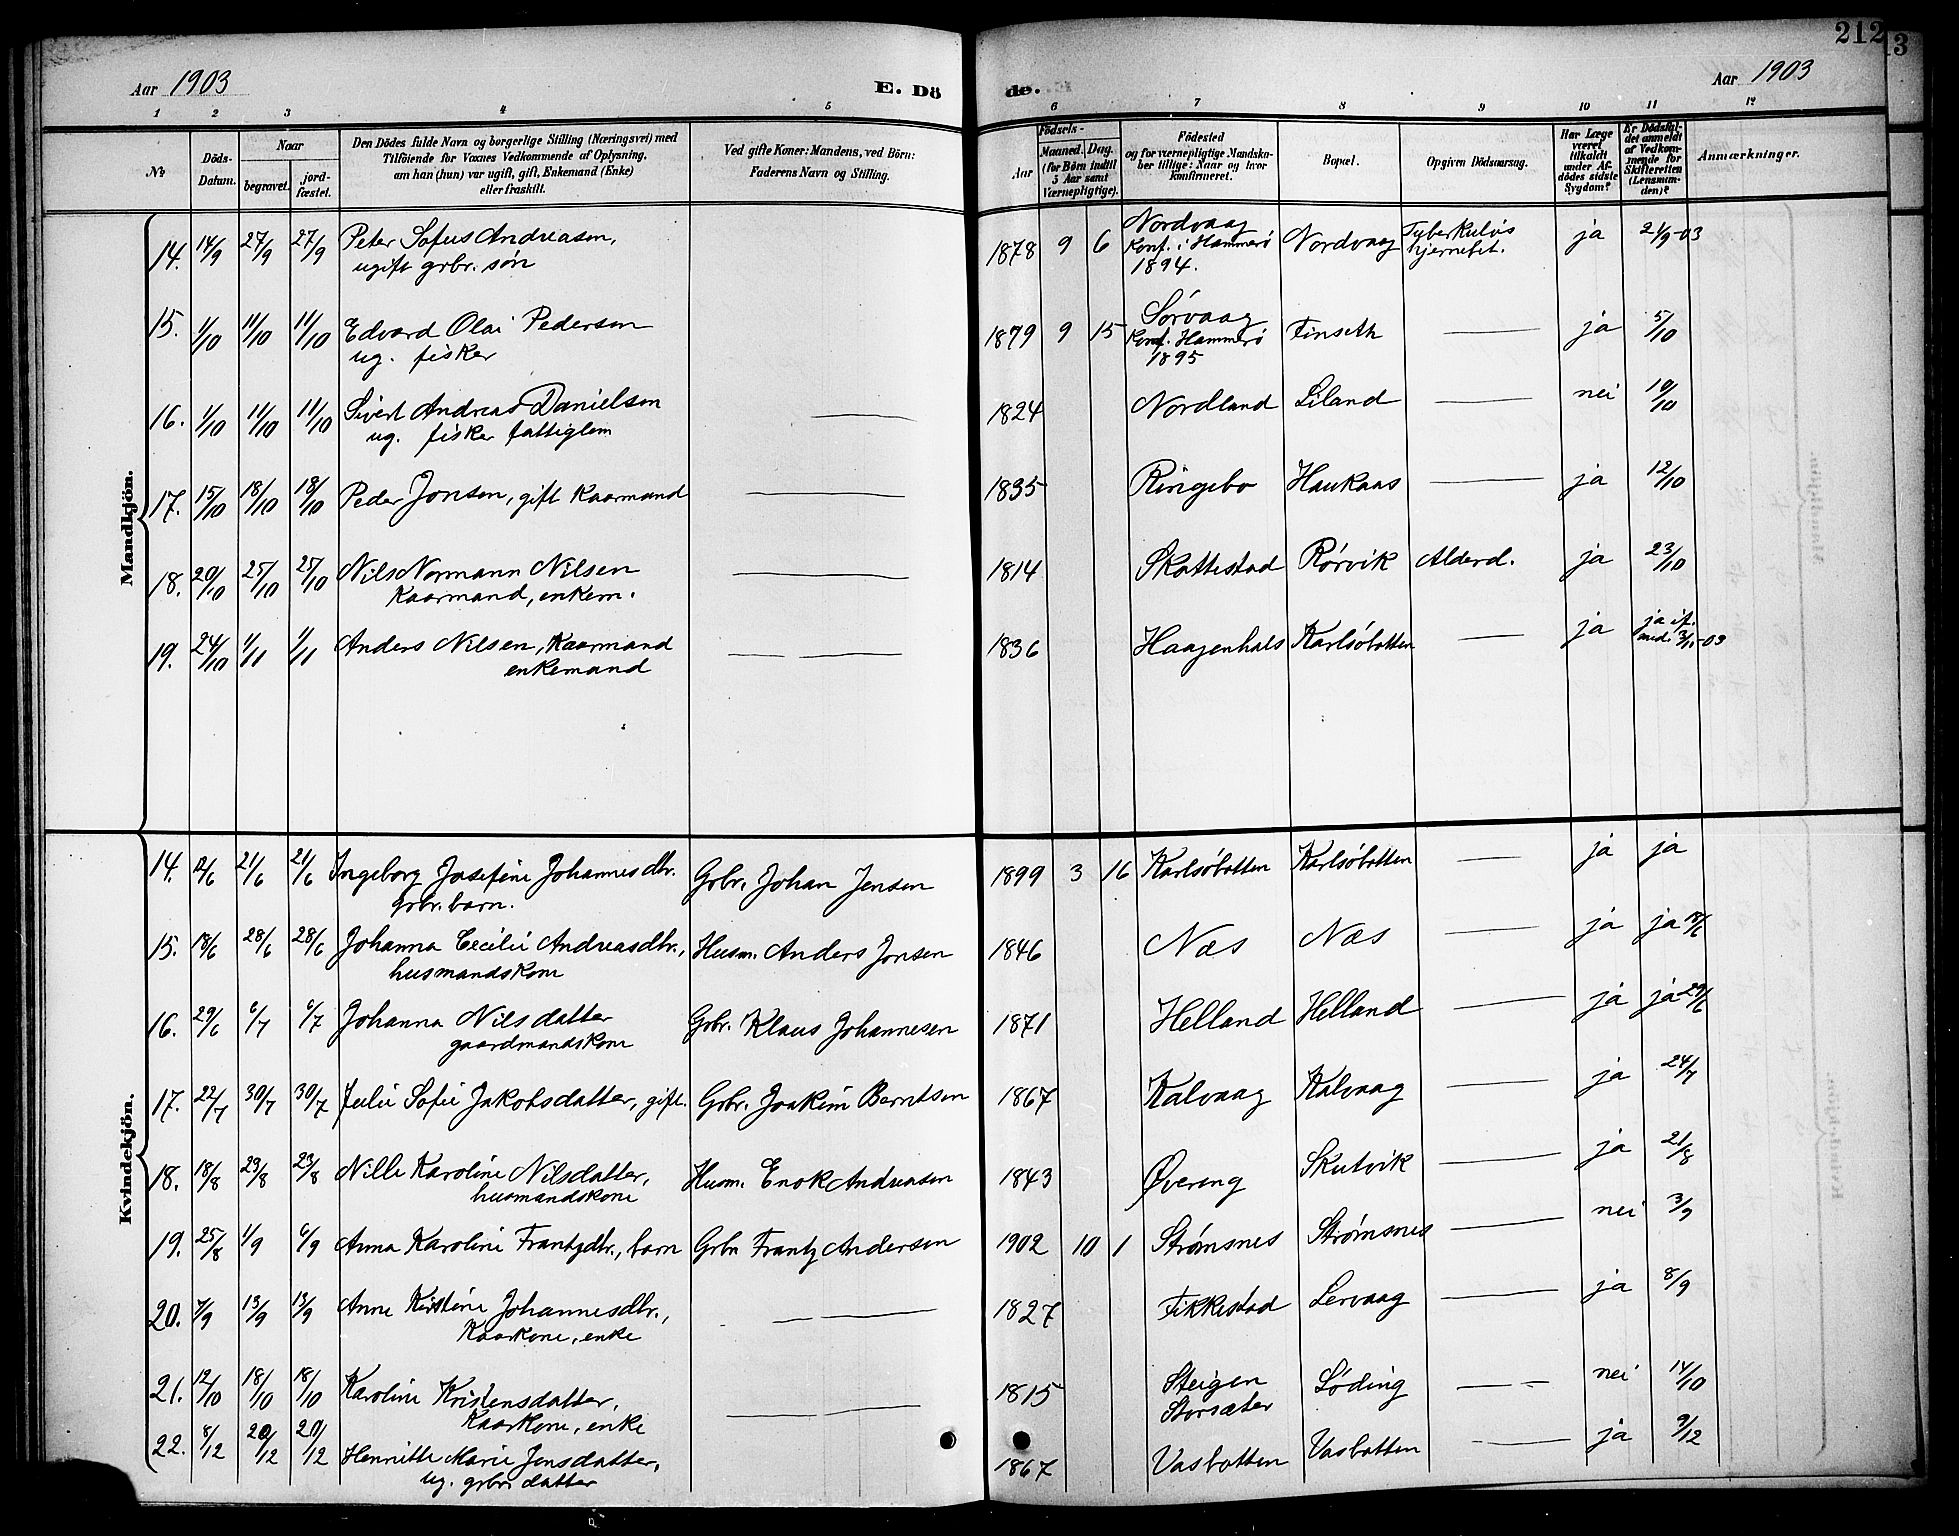 212
3
Aar 1903
E. Dö
de.
Aar 1903
1 2 3 4 5 6 7 8 9 10 11 12
No
Döds-Datum.
Naar
begravet.
jord-fæstet.
Den Dödes fulde Navn og borgerlige Stilling (Næringsvei) med
Tilföiende for Voxnes Vedkommende af Oplysning,
om han (hun) var ugift, gift, Enkemand (Enke)
eller fraskilt.
Ved gifte Koner: Mandens, ved Börn:
Faderens Navn og Stilling.
Födsels-
Aar
Maaned. Dag.
(for Börn indtil
5 Aar samt
Værnepligtige).
Födested
og for værnepligtige Mandska-
ber tillige: Naar og hvor
konfirmeret.
Bopæl.
Opgiven Dödsaarsag.
Har Læge
været
tilkaldt
under Af-
dödes sidste
Sygdom?
Er Dödsfal-
det anmeldt
af Vedkom-
mende for
Skifteretten
(Lensman-
den)?
Anmærkninger.
Mandkjön.
14. 14/9 27/9 27/9 Peter Sofus Andreasen, 1878 9 6 Nordvaag Nordvaag Tyberkuløs ja 21/9-03
ugift grbr. søn Konf. i Hammerø hjernebet.
1894.
15. 1/10 11/10 11/10 Edvard Olai Pedersen 1879 9 15 Sørvaag Finseth — ja 5/10
ug. fisker Konf. Hammerø
1895
16. 1/10 11/10 11/10 Sivert Andreas Danielsen — 1824 Nordland Liland — nei 10/10
ug. fisker fattiglem
17. 15/10 18/10 18/10 Peder Jonsen, gift Kaarmand — 1835 Ringebo Haukaas — ja 12/10
18. 20/10 25/10 25/10 Nils Normann Nilsen — 1814 Skottestad Rørvik Alderd. ja 23/10
Kaarmand, enkem.
19. 24/10 1/11 1/11 Anders Nilsen, Kaarmand — 1836 Haagenhals Karlsøbotten — ja ja if.
enkemand -03
Kvindekjön.
14. 12/6 21/6 21/6 Ingeborg Josefine Johannesdtr. Grbr. Johan Jensen 1899 3 16 Karlsøbotten Karlsøbotten — ja ja
grbr. barn.
15. 18/6 28/6 28/6 Johanna Cecilie Andreasdtr., Husm. Anders Jonsen 1846 Næs Næs — ja ja 18/6
husmandskone
16. 29/6 6/7 6/7 Johanna Nilsdatter Grbr. Klaus Johannesen 1871 Helland Helland — ja ja 29/6
gaardmandskone
17. 22/7 30/7 30/7 Julie Sofie Jakobsdatter, gift. Grbr. Joakim Berntsen 1867 Kalvaag Kalvaag — ja 24/7
18. 18/8 23/8 23/8 Nille Karoline Nilsdatter, Husm. Enok Andreasen 1843 Øvereng Skutvik — ja 21/8
husmandskone
19. 25/8 1/9 6/9 Anna Karoline Frantzdtr., barn Grbr. Frantz Andersen 1902 10 1 Strømsnes Strømsnes — nei 3/9
20. 7/9 13/9 13/9 Anne Kirstine Johannesdtr., — 1827 Fikkestad Lervaag — ja 8/9
Kaarkone, enke
21. 12/10 18/10 18/10 Karoline Kristensdatter, — 1815 Steigen Løding — nei 14/10
Kaarkone, enke Storsæter
22. 8/12 20/12 20/12 Henriette Marie Jensdatter, 1867 Vasbotten Vasbotten — ja 9/12
ug. grbr. datter